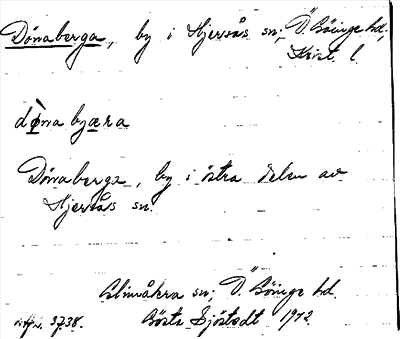 Dönaberga, by i Hjersås sn; Ö. Göinge hd,
Krist. l.
dø̀na byæra
Dönaberga, by i östra delen av
Hjersås sn.
Glimåkra sn; Ö. Göinge hd.
3738. Gösta Sjöstedt 1972